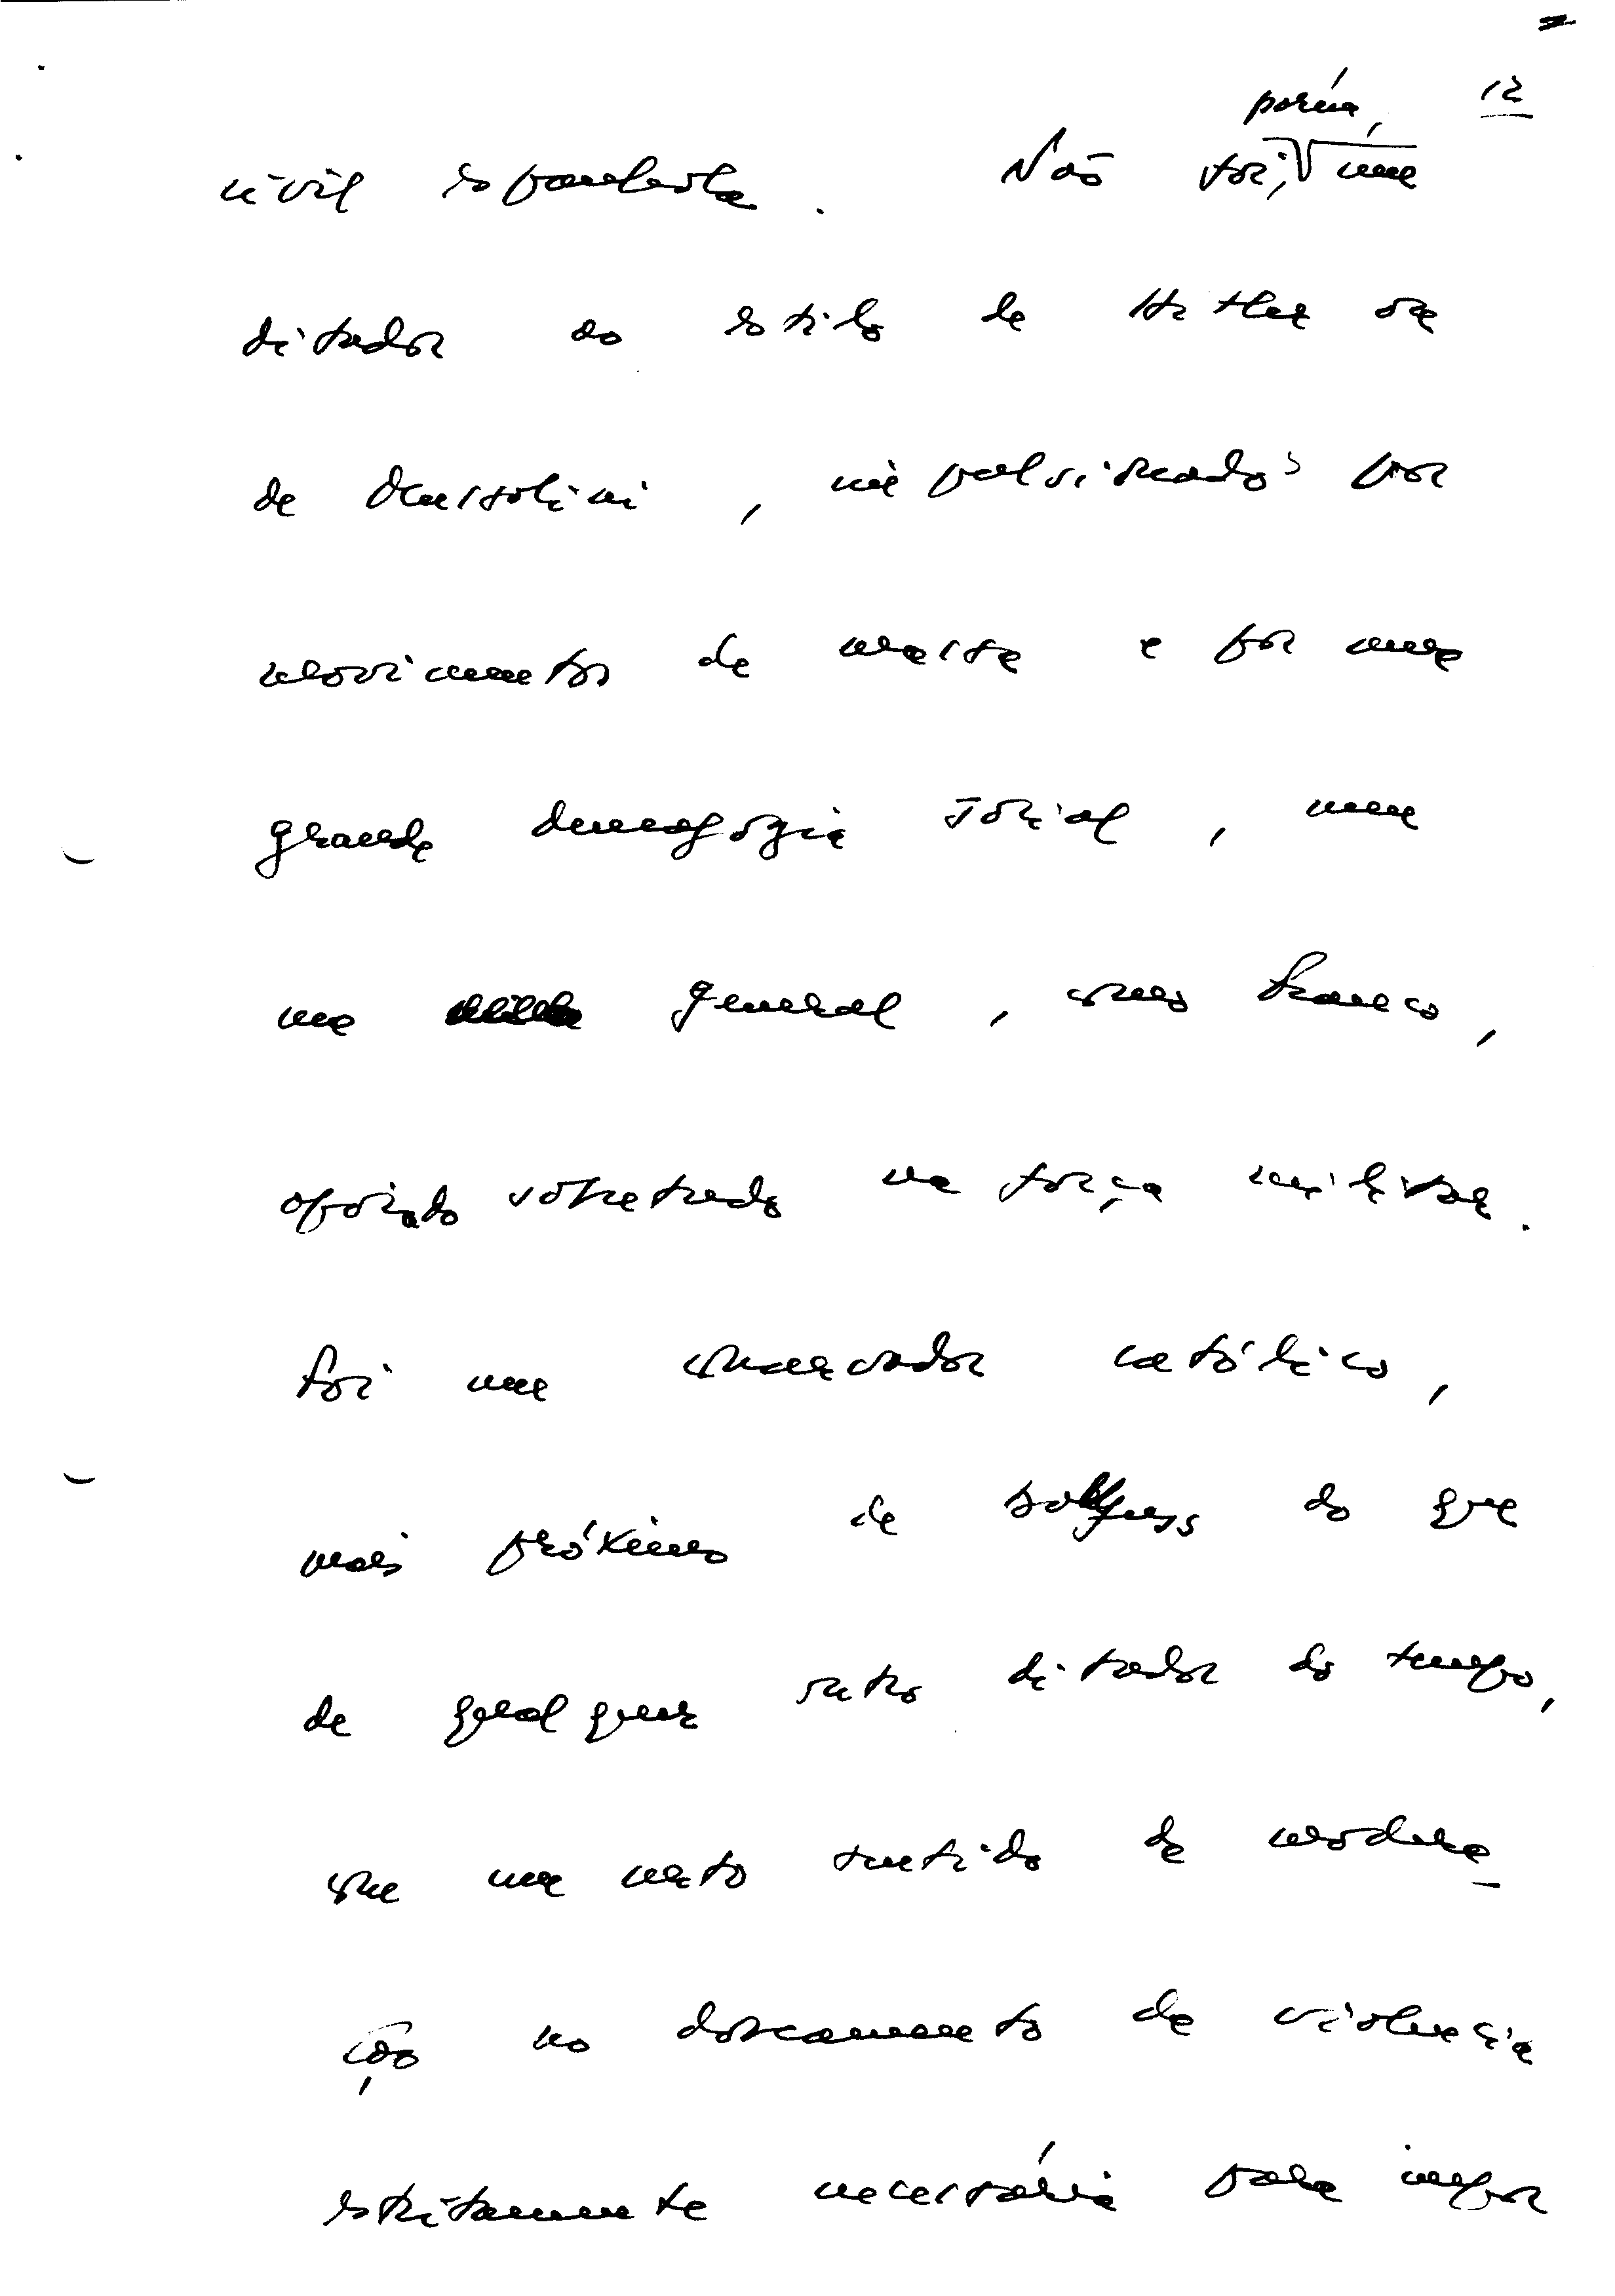 12
porém,
civil espanhola. Não foi, um
ditador ao estilo de Hitler ou
de Mussolini, impulsionados por
movimentos de massa e por uma
grande demagogia social, nem
um general, como Franco,
apoiado sobretudo na força militar.
Foi um conservador católico,
mais próximo de Dollfuss do que
de qualquer outro ditador do tempo,
com um nato sentido de modera-
ção no doseamento de violência
estritamente necessária para impor